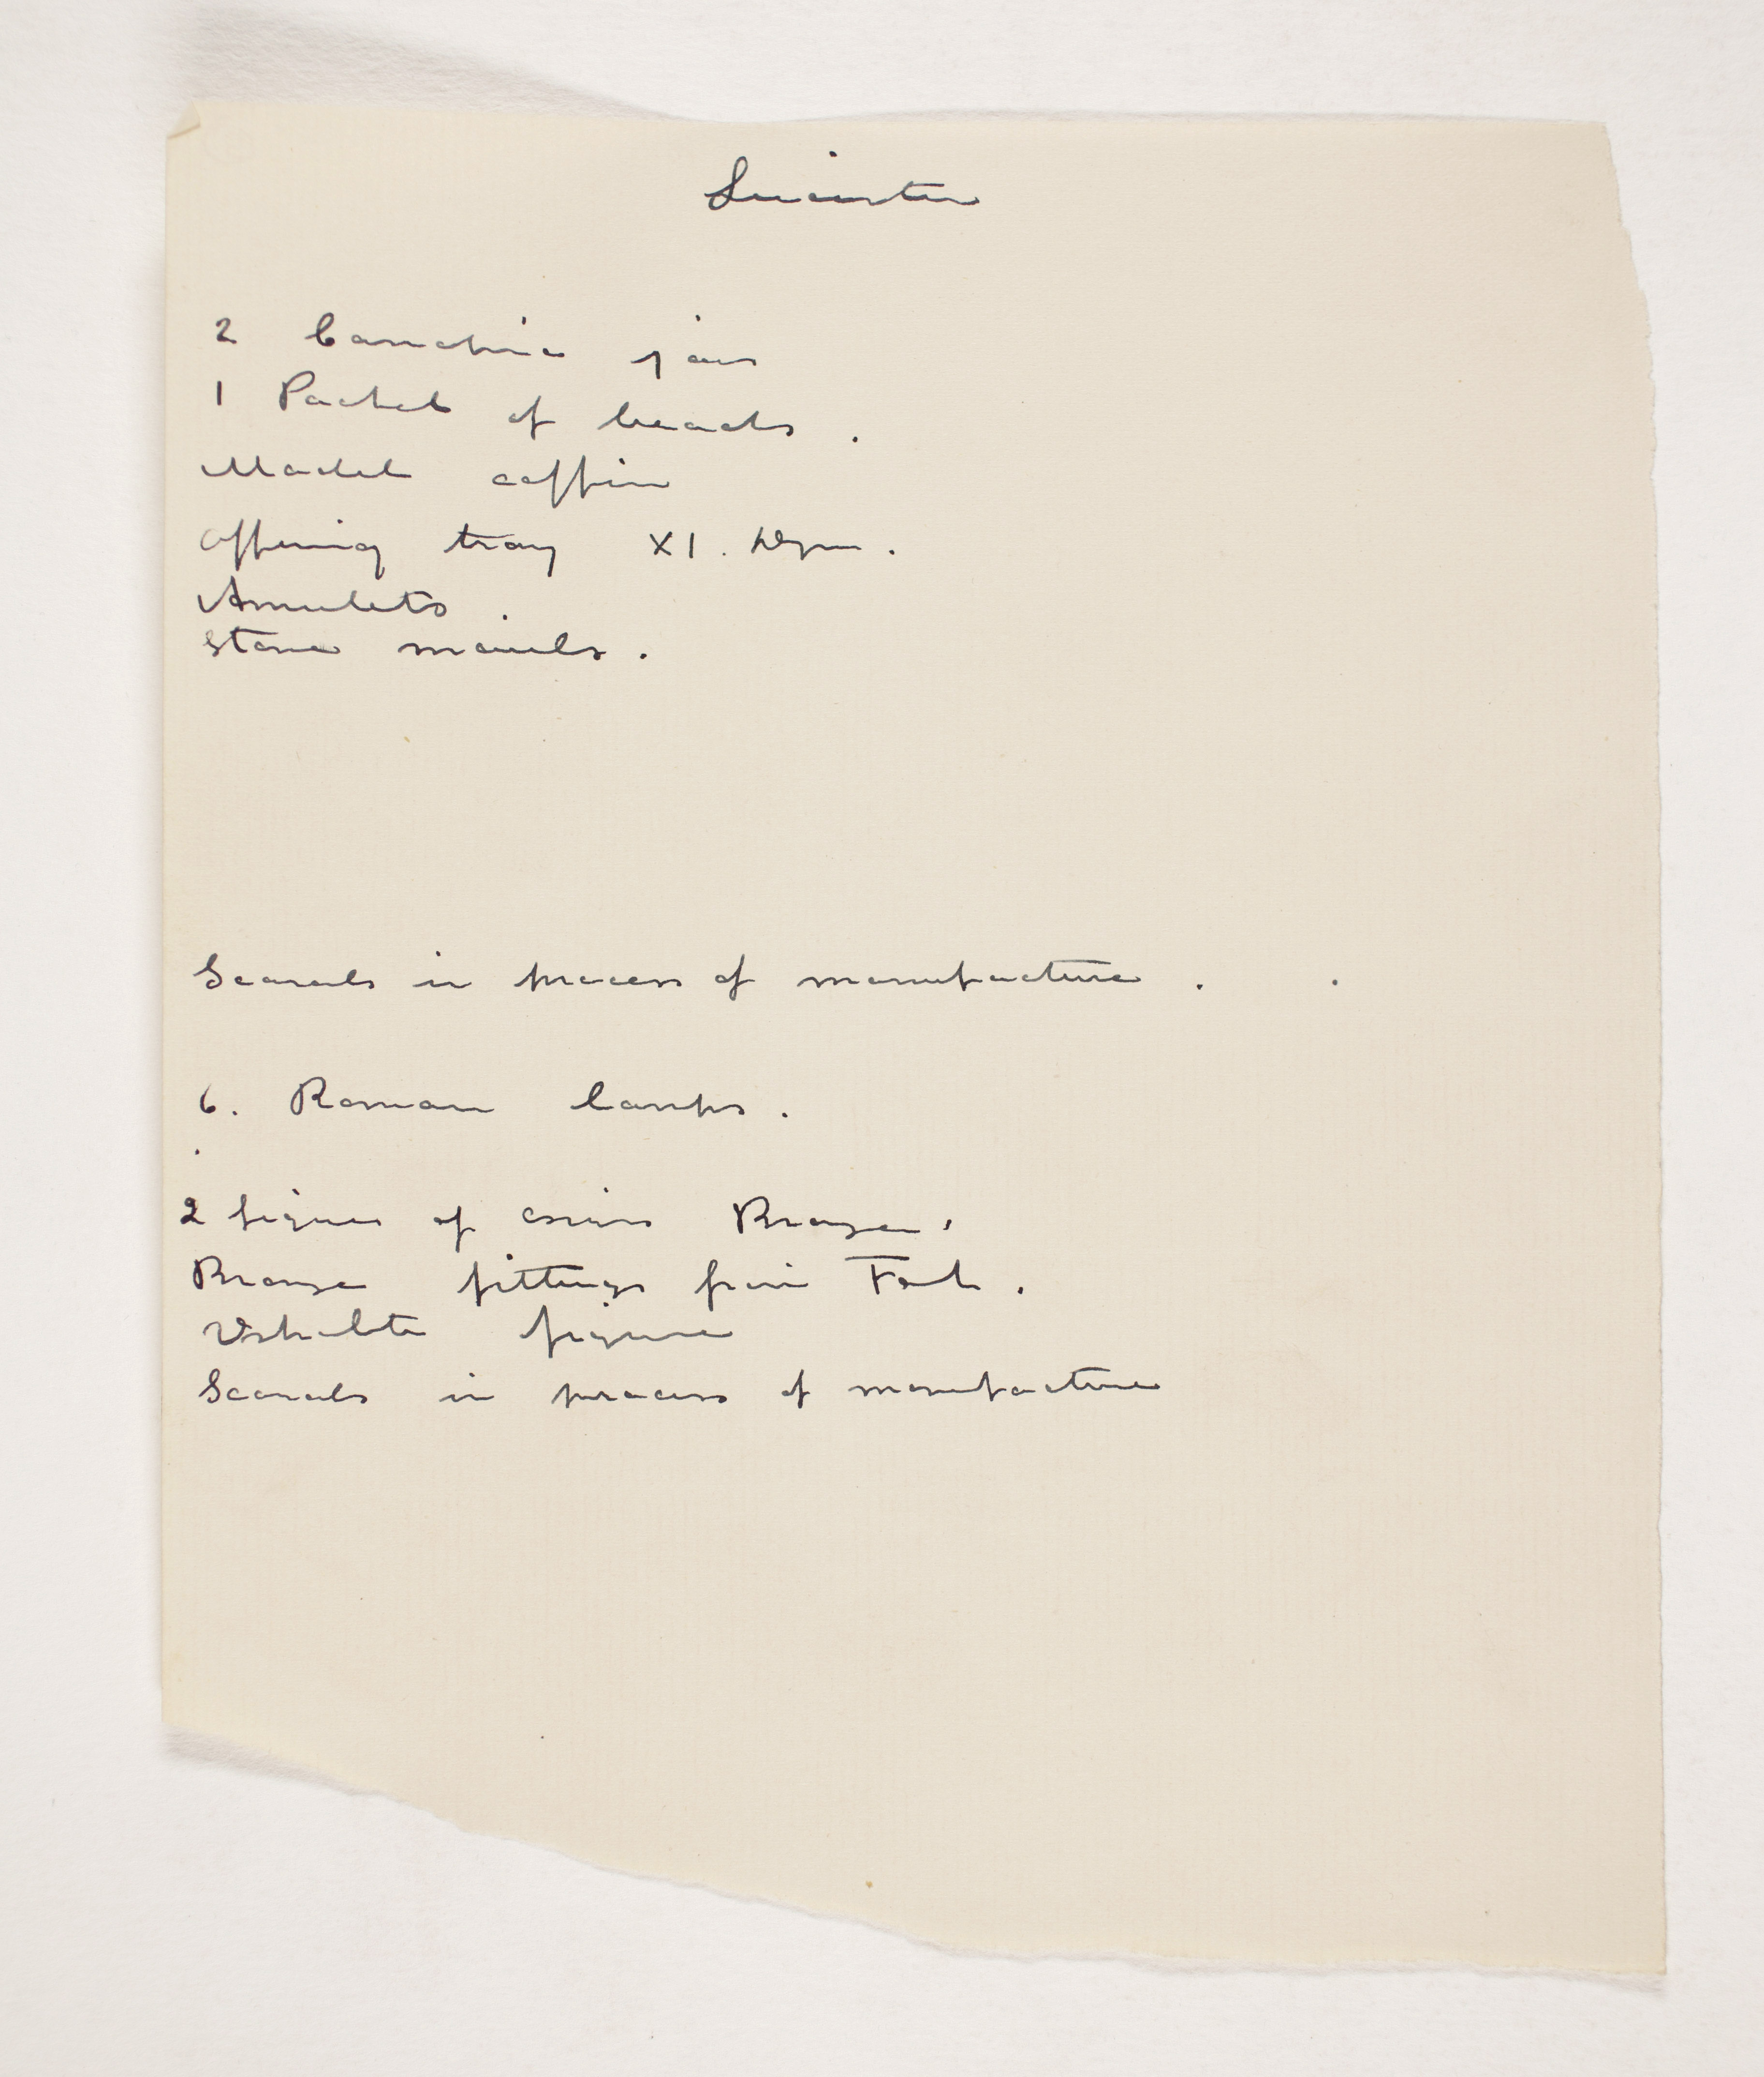 Leicester
2 Canopic jars
1 Packet of beads.
Model coffin
Offering tray XI. Dyn.
Amulets.
Stone mauls.
Scarabs in process of manufacture.
6. Roman lamps.
2 figures of Osiris Bronze.
Bronze fittings from Tomb.
Ushabti figure
Scarabs in process of manufacture